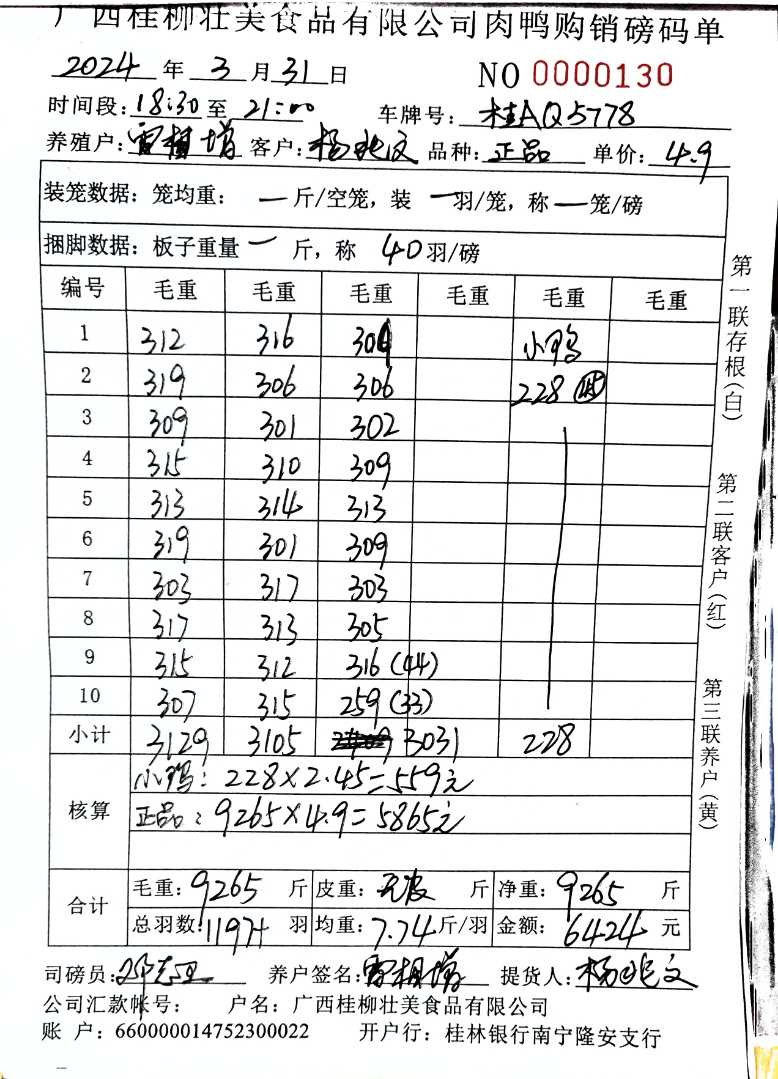 广西桂柳壮美食品有限公司肉鸭购销磅码单
2024 年 3 月 31 日 NO 0000130
时间段: 18:30 至 21:00 车牌号: 桂AQ5778
养殖户: 雷植增 客户: 杨兆文 品种: 正品 单价: 4.9
装笼数据: 笼均重: 一斤/空笼, 装一羽/笼, 称一笼/磅
捆脚数据: 板子重量 一 斤, 称 40 羽/磅
编号 毛重 毛重 毛重 毛重 毛重 毛重
1 312 316 304 小鸭
2 319 306 306 228
3 309 301 302
4 315 310 309
5 313 314 313
6 319 301 309
7 303 317 303
8 317 313 305
9 315 312 316 (44)
10 307 315 259 (33)
小计 3129 3105 3031 228
核算 小鸭: 228×2.45=559元
正品: 9265×4.9=5865元
合计 毛重: 9265 斤 皮重: 无皮 斤 净重: 9265 斤
总羽数: 1197 羽 均重: 7.74 斤/羽 金额: 6424 元
司磅员: 养户签名: 雷植增 提货人: 杨兆文
公司汇款帐号: 户名: 广西桂柳壮美食品有限公司
账 户: 660000014752300022 开户行: 桂林银行南宁隆安支行
第一联存根(白)
第二联客户(红)
第三联养户(黄)